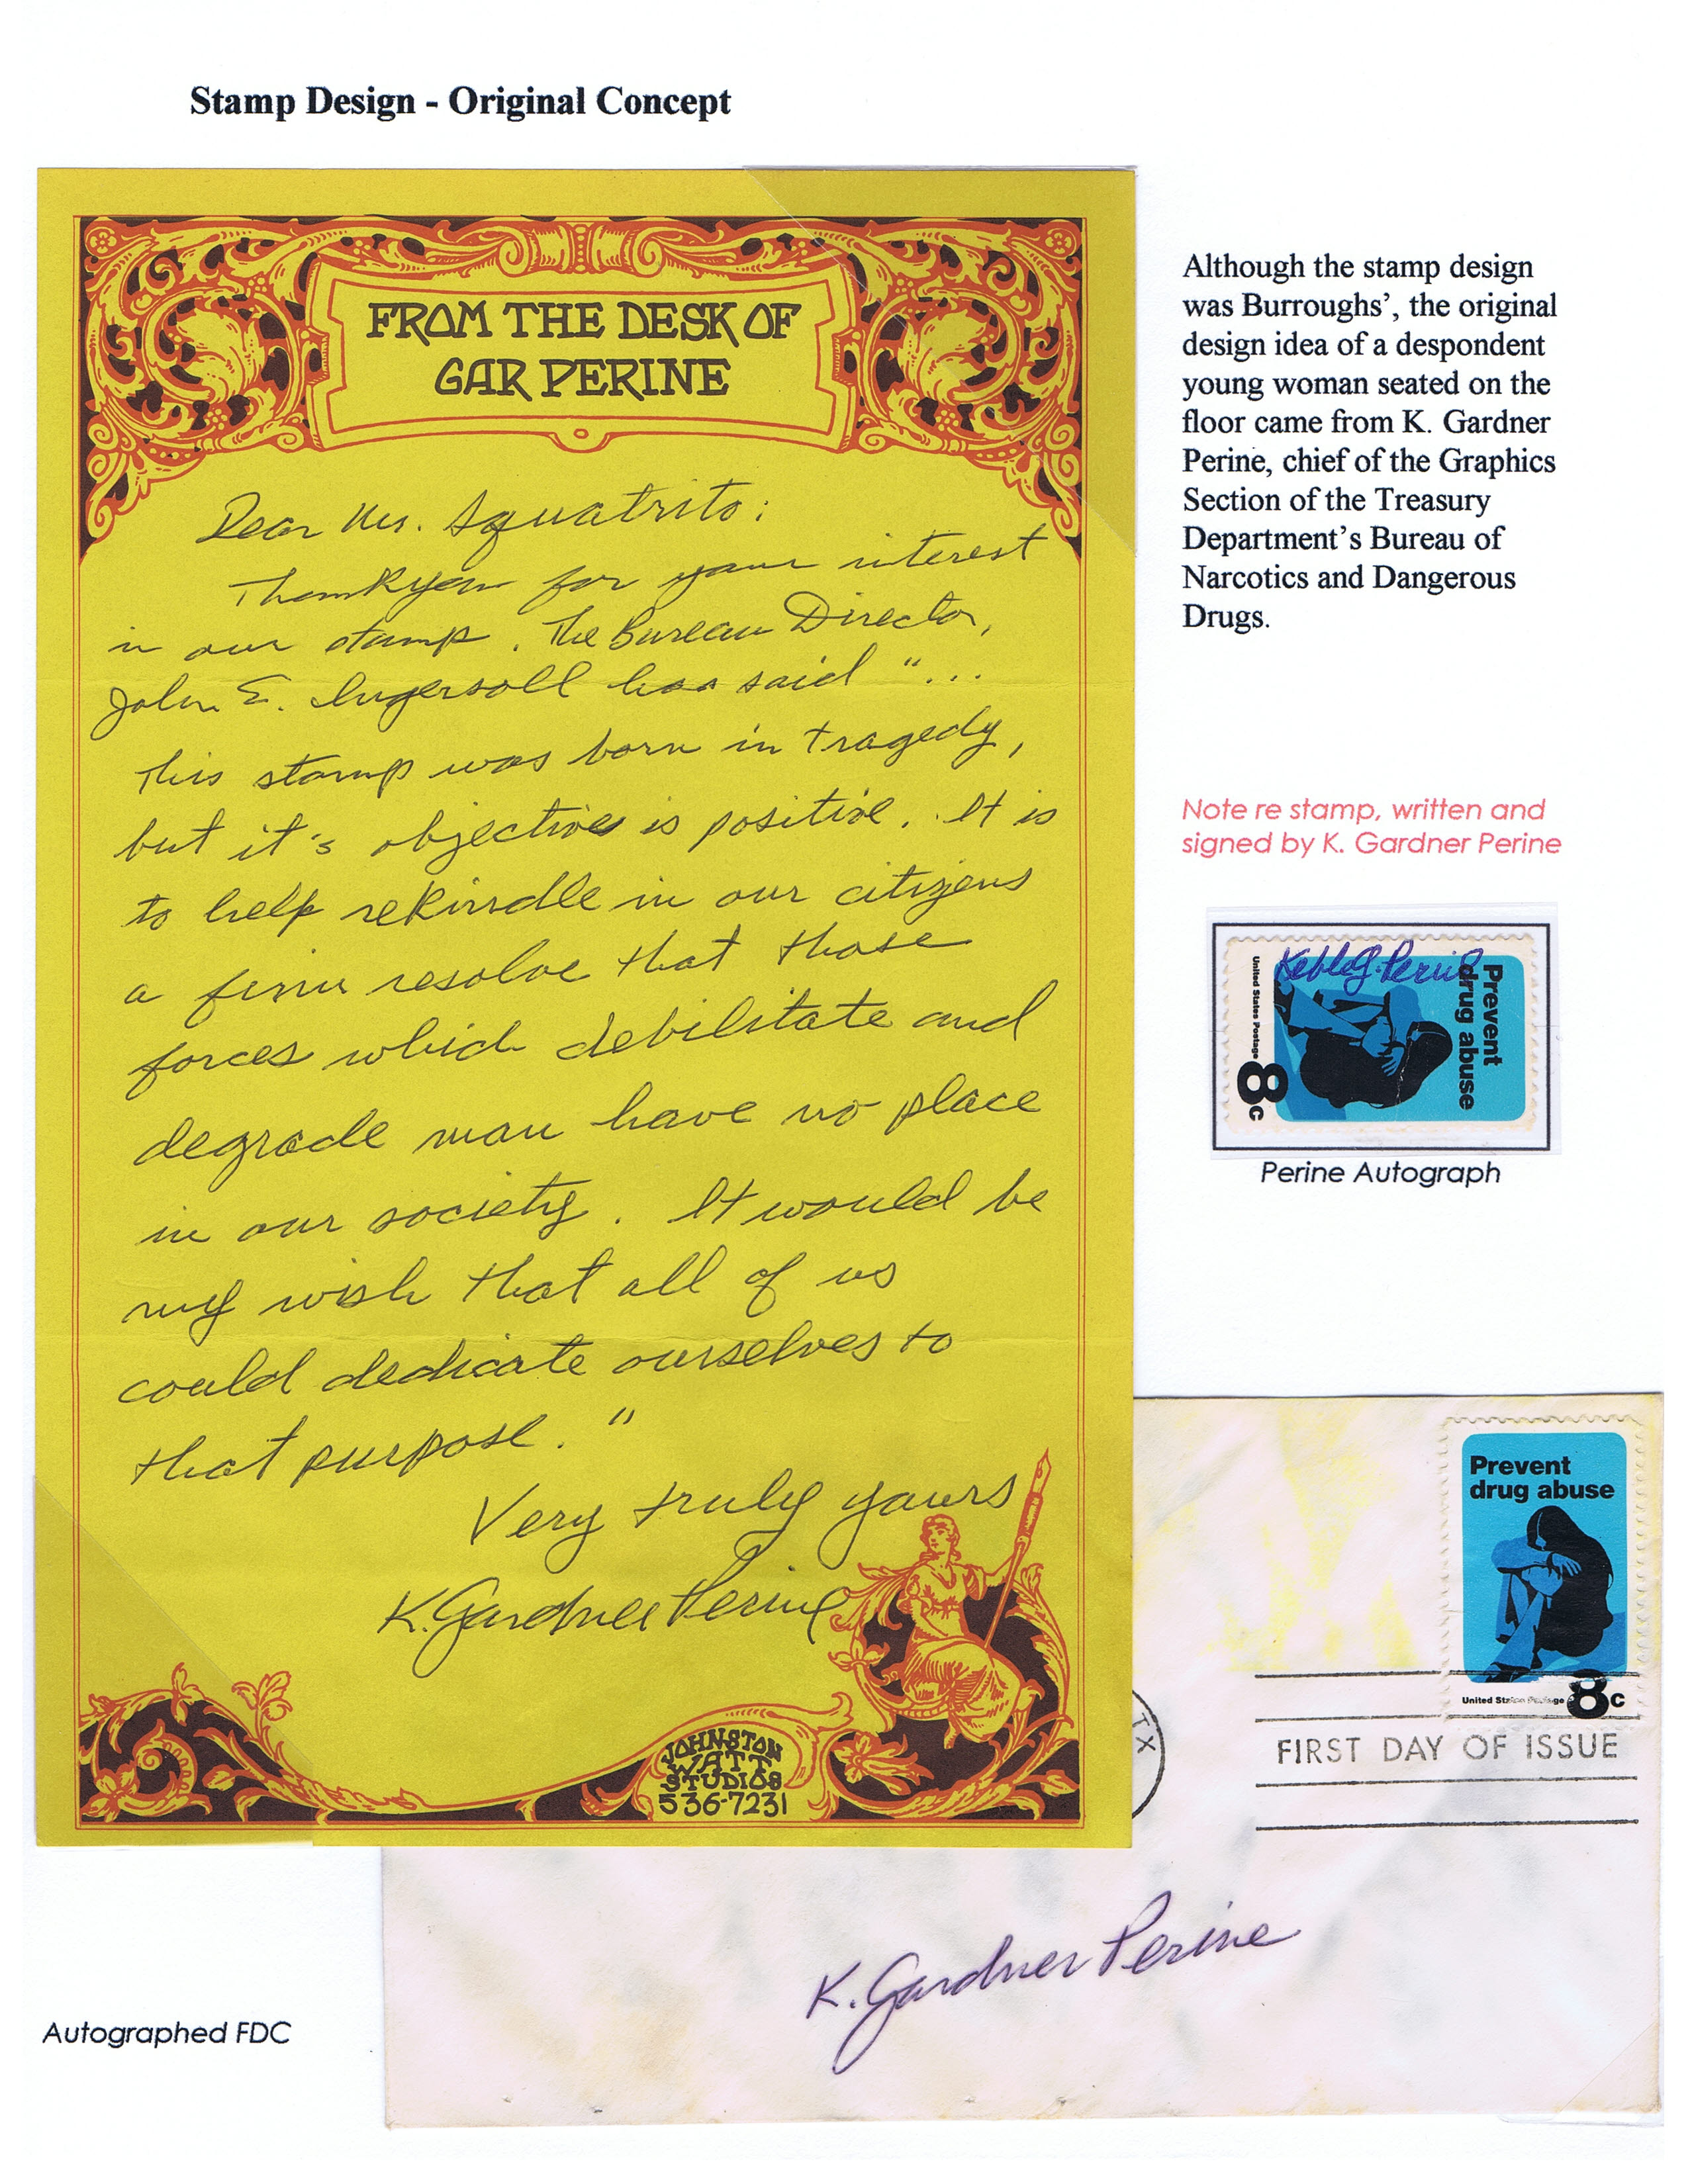 Stamp Design - Original Concept
FROM THE DESK OF
GAR PERINE
Dear Ms. Squatrito:
Thank you for your interest
in our stamp. The Bureau Director,
John E. Ingersoll has said "...
This stamp was born in tragedy,
but it's objective is positive. It is
to help rekindle in our citizens
a firm resolve that those
forces which debilitate and
degrade man have no place
in our society. It would be
my wish that all of us
could dedicate ourselves to
that purpose."
Very truly yours
K. Gardner Perine
JOHNSTON
WATT
STUDIOS
536-7231
Although the stamp design
was Burroughs’, the original
design idea of a despondent
young woman seated on the
floor came from K. Gardner
Perine, chief of the Graphics
Section of the Treasury
Department’s Bureau of
Narcotics and Dangerous
Drugs.
Note re stamp, written and
signed by K. Gardner Perine
Perine
Prevent
drug abuse
United States Postage 8c
Perine Autograph
Prevent
drug abuse
United States Postage 8c
TX
FIRST DAY OF ISSUE
K. Gardner Perine
Autographed FDC